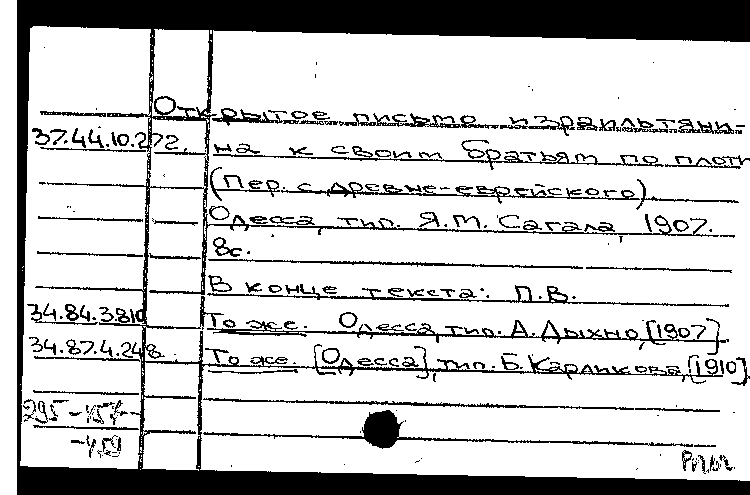 Открытое письмо израильтяни-
37.44.10.272. на к своим братьям по плоти
(Пер. с древне-еврейского).
Одесса, тип. Я.М. Сагала, 1907.
8с.
В конце текста: П.В.
34.84.3810 То же. Одесса, тип. А. Дыхно, [1907].
34.87.4.248. То же. [Одесса], тип. Б. Карликова, [1910].
295-157-
-459